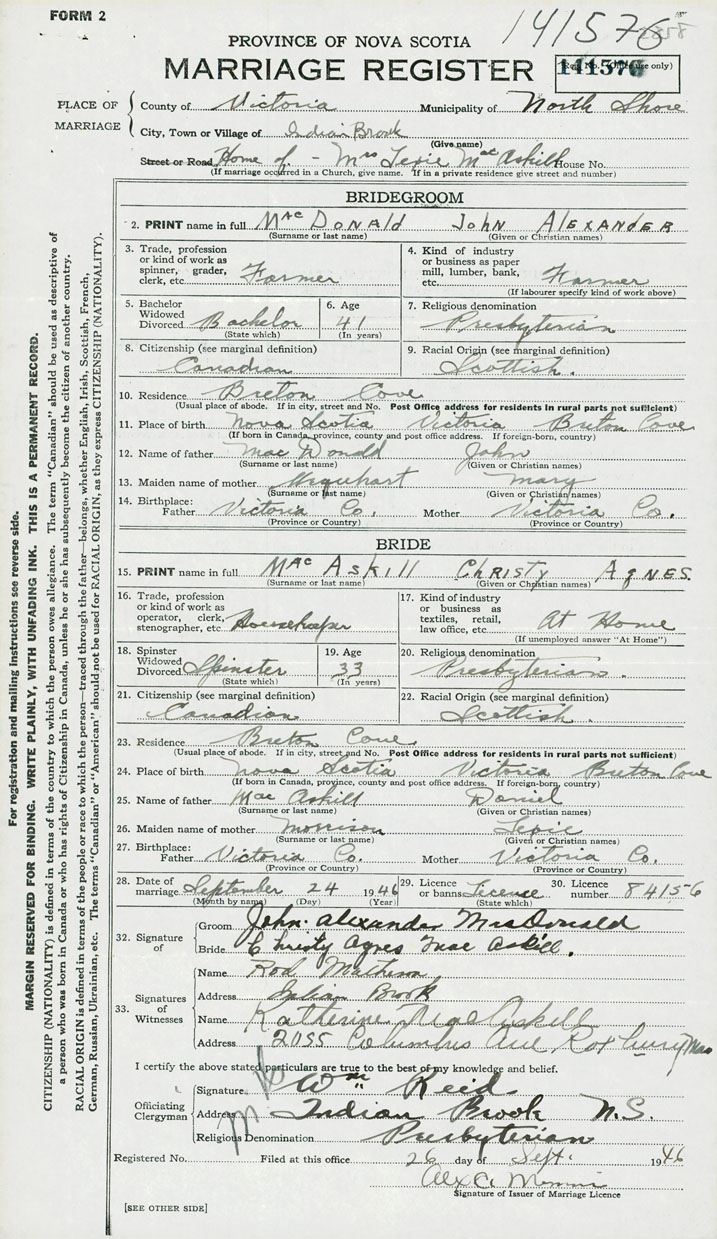 FORM 2
141576
PROVINCE OF NOVA SCOTIA
MARRIAGE REGISTER
141576
PLACE OF MARRIAGE
County of Victoria Municipality of North Shore
City, Town or Village of Indian Brook
(Give name)
Street or Road Home of - Mrs Lexie MacAskill House No.
(If marriage occurred in a Church, give name. If in a private residence give street and number)
BRIDEGROOM
2. PRINT name in full MacDonald John Alexander
(Surname or last name) (Given or Christian names)
3. Trade, profession or kind of work as spinner, grader, clerk, etc. Farmer
4. Kind of industry or business as paper mill, lumber, bank, etc. Farmer
(If labourer specify kind of work above)
5. Bachelor Widowed Divorced Bachelor (State which)
6. Age 41 (In years)
7. Religious denomination Presbyterian
8. Citizenship (see marginal definition) Canadian
9. Racial Origin (see marginal definition) Scottish.
10. Residence Breton Cove
(Usual place of abode. If in city, street and No. Post Office address for residents in rural parts not sufficient)
11. Place of birth Nova Scotia Victoria Breton Cove
(If born in Canada, province, county and post office address. If foreign-born, country)
12. Name of father MacDonald John
(Surname or last name) (Given or Christian names)
13. Maiden name of mother Urquhart Mary
(Surname or last name) (Given or Christian names)
14. Birthplace: Father Victoria Co. Mother Victoria Co.
(Province or Country) (Province or Country)
BRIDE
15. PRINT name in full MacAskill Christy Agnes
(Surname or last name) (Given or Christian names)
16. Trade, profession or kind of work as operator, clerk, stenographer, etc. Housekeeper
17. Kind of industry or business as textiles, retail, law office, etc. At Home
(If unemployed answer "At Home")
18. Spinster Widowed Divorced Spinster (State which)
19. Age 33 (In years)
20. Religious denomination Presbyterian.
21. Citizenship (see marginal definition) Canadian
22. Racial Origin (see marginal definition) Scottish.
23. Residence Breton Cove
(Usual place of abode. If in city, street and No. Post Office address for residents in rural parts not sufficient)
24. Place of birth Nova Scotia Victoria Breton Cove
(If born in Canada, province, county and post office address. If foreign-born, country)
25. Name of father MacAskill Daniel
(Surname or last name) (Given or Christian names)
26. Maiden name of mother Morrison Lexie
(Surname or last name) (Given or Christian names)
27. Birthplace: Father Victoria Co. Mother Victoria Co.
(Province or Country) (Province or Country)
28. Date of marriage September 24 1946 (Month by name) (Day) (Year)
29. Licence or banns License (State which)
30. Licence number 84156
32. Signature of
Groom John Alexander MacDonald
Bride Christy Agnes MacAskill.
33. Signatures of Witnesses
Name Rod Matheson
Address Indian Brook
Name Katherine MacAskill
Address 2055 Columbus Ave Roxbury Mass
I certify the above stated particulars are true to the best of my knowledge and belief.
Officiating Clergyman
Signature Wm Reid
Address Indian Brook N.S.
Religious Denomination Presbyterian
Registered No. Filed at this office 26 day of Sept. 1946
Alex C.
Signature of Issuer of Marriage Licence
[SEE OTHER SIDE]
For registration and mailing instructions see reverse side.
MARGIN RESERVED FOR BINDING. WRITE PLAINLY, WITH UNFADING INK. THIS IS A PERMANENT RECORD.
CITIZENSHIP (NATIONALITY) is defined in terms of the country to which the person owes allegiance. The term "Canadian" should be used as descriptive of
a person who was born in Canada or who has rights of Citizenship in Canada, unless he or she has subsequently become the citizen of another country.
RACIAL ORIGIN is defined in terms of the people or race to which the person—traced through the father—belongs, whether English, Irish, Scottish, French,
German, Russian, Ukrainian, etc. The terms "Canadian" or "American" should not be used for RACIAL ORIGIN, as they express CITIZENSHIP (NATIONALITY).